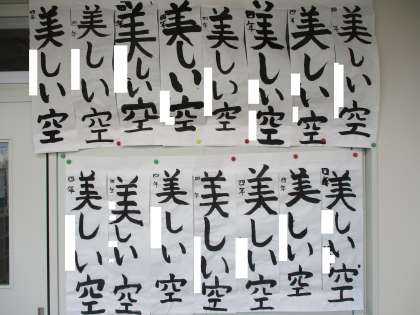 美しい空
四年
美しい空
四年
美しい空
四年
美しい空
美しい空
四年
美しい空
四年
美しい空
四年
美しい空
四年
美しい空
四年
美しい空
四年
美しい空
四年
美しい空
四年
美しい空
四年
美しい空
四年
美しい空
四年